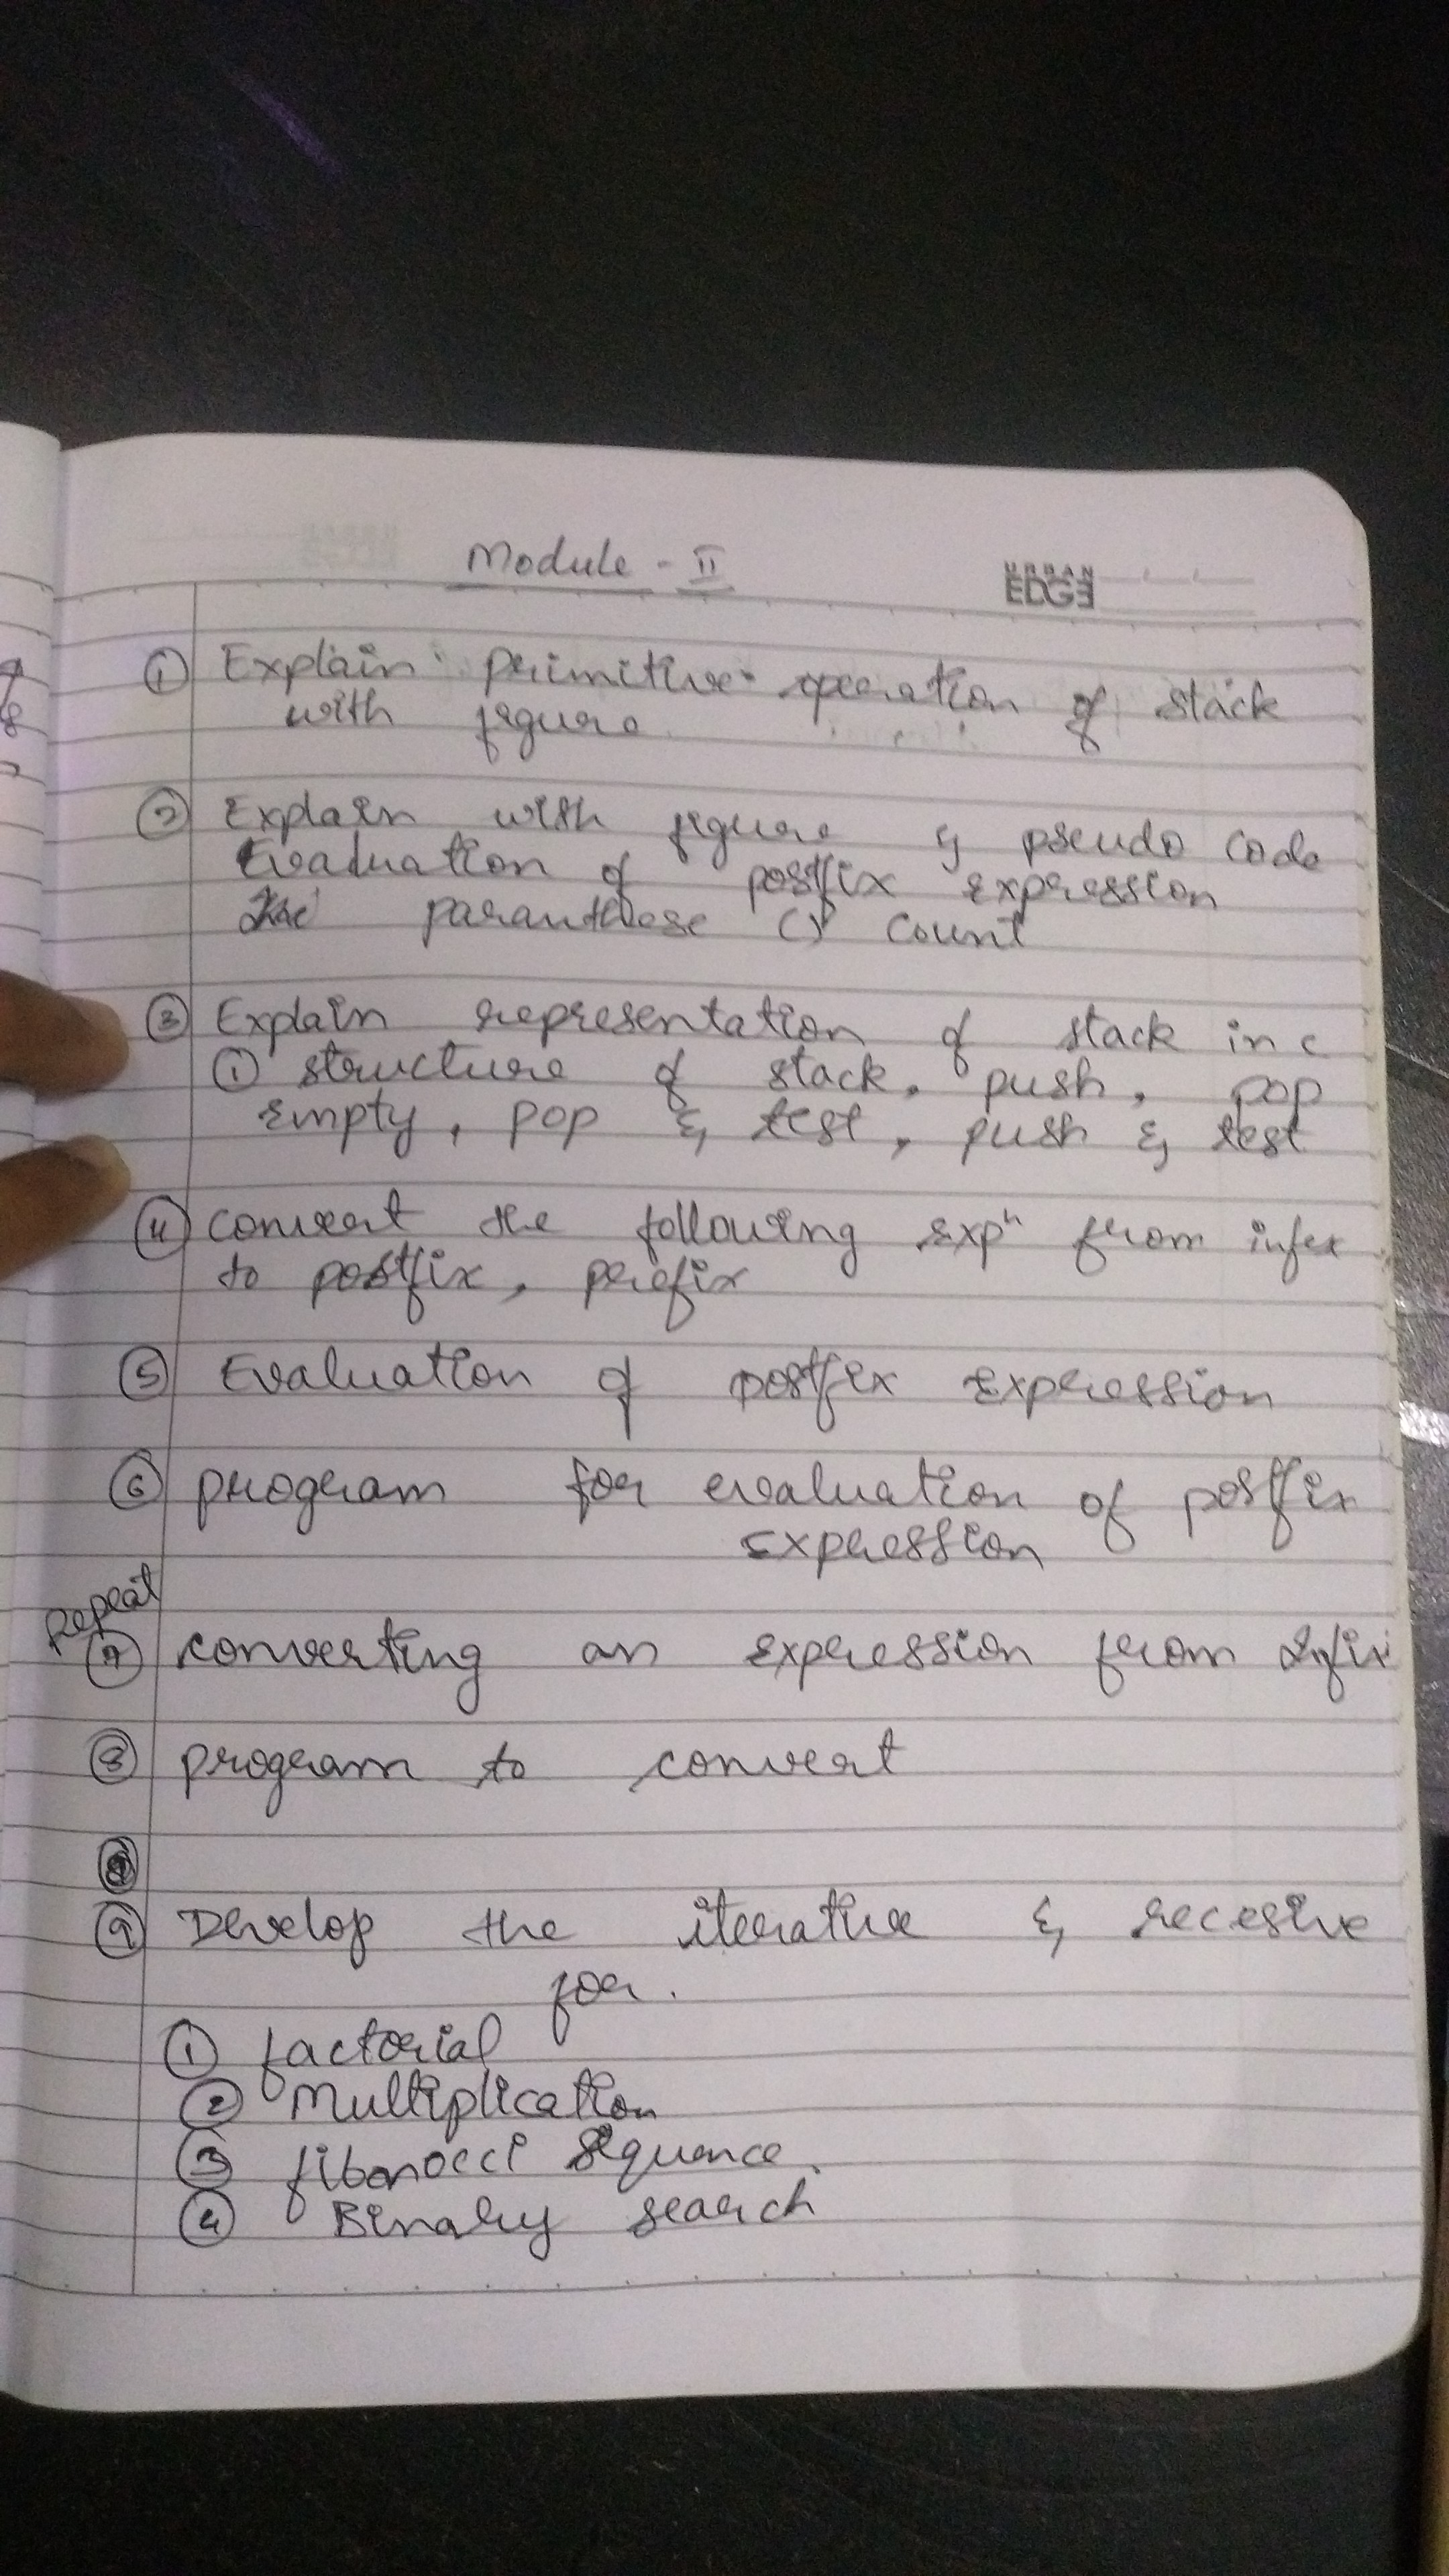 Module - II
URBAN
EDGE
① Explain primitive operation of stack
with figure
② Explain with figure & pseudo code
Evaluation of postfix expression
paranthese () count
③ Explain representation of stack in c
① structure of stack, push, pop
empty, pop & test, push & test
④ convert the following expⁿ from infix
to postfix, prefix
⑤ Evaluation of postfix expression
⑥ program for evaluation of postfix
expression
Repeat
⑦ converting an expression from Infix
⑧ program to convert
⑨ Develop the iterative & recesive
for.
① factorial
② Multiplication
③ fibonocci sequence.
④ Binary search